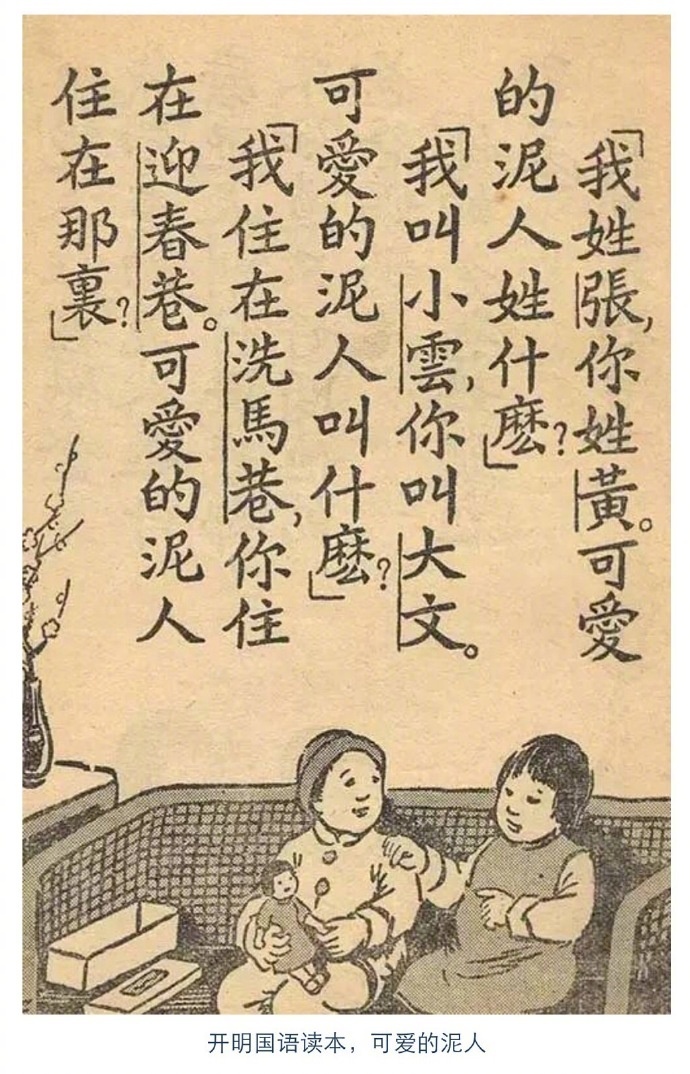 「我姓張,你姓黃。可愛
的泥人姓什麼?」
「我叫小雲,你叫大文。
可愛的泥人叫什麼?」
「我住在洗馬巷,你住
在迎春巷。可愛的泥人
住在那裏?」
开明国语读本，可爱的泥人